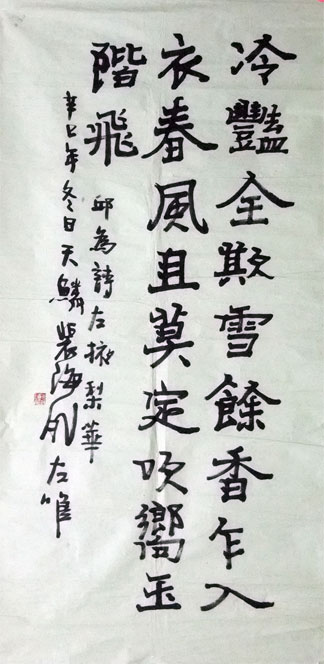 冷豔全欺雪餘香乍入
衣春風且莫定吹嚮玉
階飛
邱為詩左掖梨華
辛巳年冬日天鱗裴海風左唯